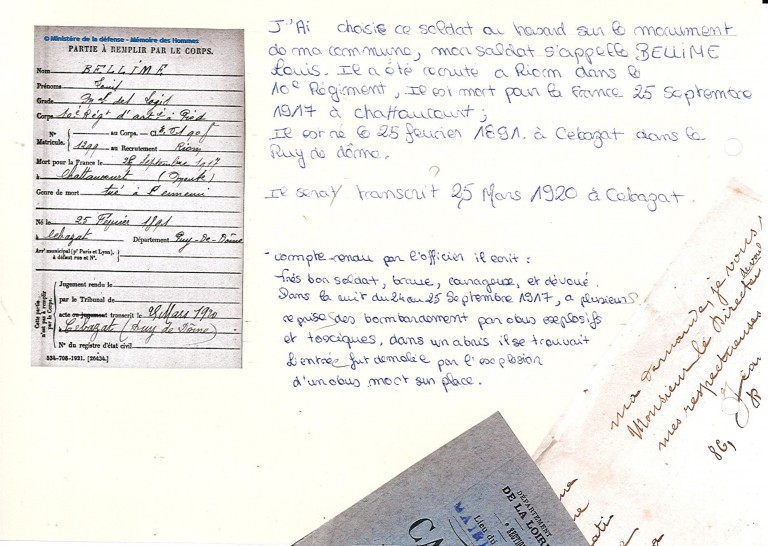 © Ministère de la défense - Mémoire des Hommes
PARTIE À REMPLIR PAR LE CORPS.
Nom BELLIME
Prénoms Louis
Grade Mal des Logis
Corps 10e Régt d'artie à Pied
N° au Corps. — Cl.
Matricule. 1299 au Recrutement Riom
Mort pour la France le 25 Septembre 1917
à Chattancourt (Meuse)
Genre de mort tué à l'ennemi
Né le 25 Février 1891
à Cébazat Département Puy-De-Dôme
Arrt municipal (pr Paris et Lyon),
à défaut rue et N°.
Cette partie n'est pas à remplir par le Corps.
Jugement rendu le
par le Tribunal de
acte ou jugement transcrit le 25 Mars 1920
à Cébazat (Puy de Dôme)
N° du registre d'état civil
534-708-1921. [26434.]
J'Ai choisie ce soldat au hasard sur le monument
de ma commune, mon soldat s'appelle BELLIME
Louis. Il a été recruté a Riom dans le
10e Régiment, Il est mort pour la France 25 Septembre
1917 à chattaucourt;
Il est né le 25 feurier 1891. à Cebazat dans le
Puy de dôme.
?
Il serat transcrit 25 Mars 1920 à Cebazat.
- compte-rendu par l'officier il ecrit :
Très bon soldat, brave, courageux, et dévoué.
Dans la nuit du 24 au 25 Septembre 1917, a plusieurs
reprises des bombardement par obus explosifs
et toxciques, dans un abris il se trouvait
L'entrée fut demolie par l'explosion
d'un obus mort sur place.
ma demande, je vous
Monsieur le Directeur
mes respectueuses
86,
DÉPARTEMENT
DE LA LOIRE
Lieu du
MAIRIE
CA